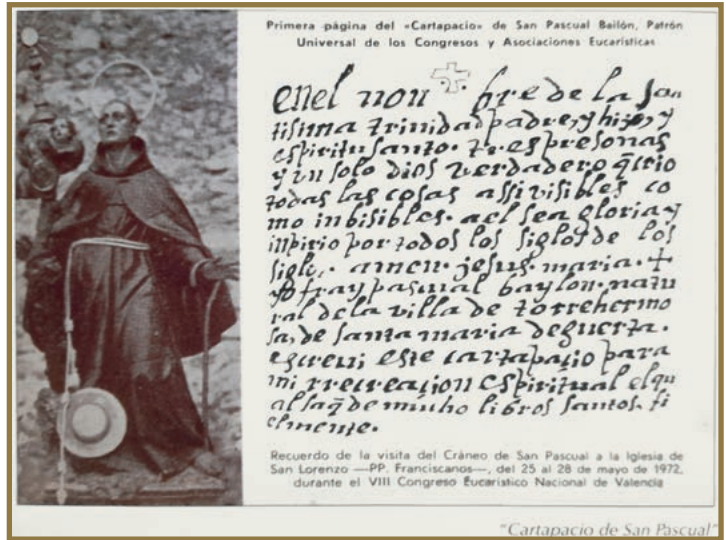 Primera página del «Cartapacio» de San Pascual Bailón, Patrón
Universal de los Congresos y Asociaciones Eucarísticas
enel non bre de la san
tisima trinidad padre, y hijo, y
espiritu santo. tres presonas
y un solo dios verdadero q̃ crio
todas las cosas assi visibles co
mo inbisibles. a el sea gloria y
inpirio por todos los siglos de los
siglos. amen. jesus. maria. +
yo fray pasqual baylon. natu
ral de la villa de torrehermo
sa, de santa maria de guerta.
escrevi este cartapacio para
mi rrecreacion espiritual el qu
al saq̃ de mucho libros santos. fi
elmente.
Recuerdo de la visita del Cráneo de San Pascual a la Iglesia de
San Lorenzo —PP. Franciscanos—, del 25 al 28 de mayo de 1972,
durante el VIII Congreso Eucarístico Nacional de Valencia
"Cartapacio de San Pascual"